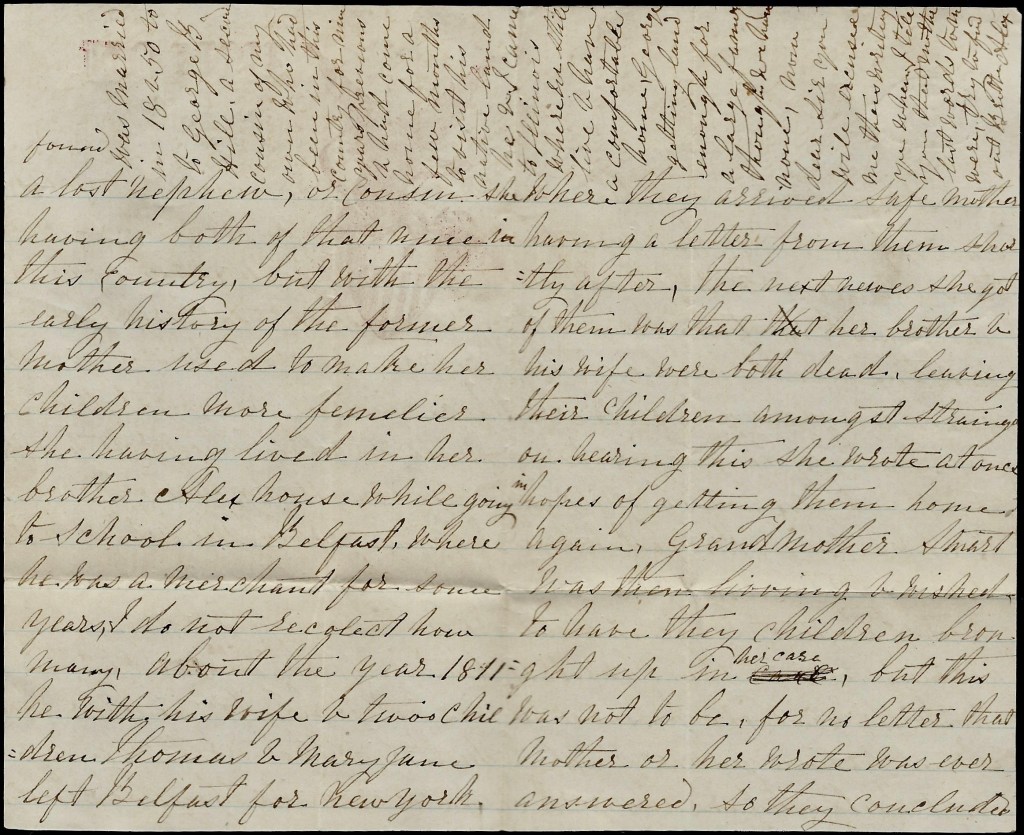 found
a lost nephew, or cousin she
having both of that name in
this country, but with the
early history of the former
mother used to make her
children more femelier
she having lived in her
brother Alex house while going
to School in Belfast, where
he was a merchant for some
years, I do not recolect how
many, about the year 1811
he with his wife & twoo chil
=dren Thomas & Mary Jane
left Belfast for newyork,
where they arrived safe mother
having a letter from them shor
=tly after, the next newes she got
of them was that that her brother &
his wife were both dead, leaving
their children amongst strainge
on hearing this she wrote at once
in hopes of getting them home
again, Grandmother Stuart
was then lioving & wished
to have they children brou
=ght up in her care, but this
was not to be, for no letter that
mother or her wrote was ever
answered, so they concluded
was married
in 1850 to
to George B
Hill a second
cousin of my
own who had
been in this
country for nine
years previous
& had come
home for a
few months
to visit his
native land
he & I came
to Illinois
where we still
live & have
a comfortable
home George
getting land
enough for
a large family
though we have
none, now
dear sir you
will excuse
me this writing
you when I tell
you that mothers
last words to me
were, try to find
out Brother Alex